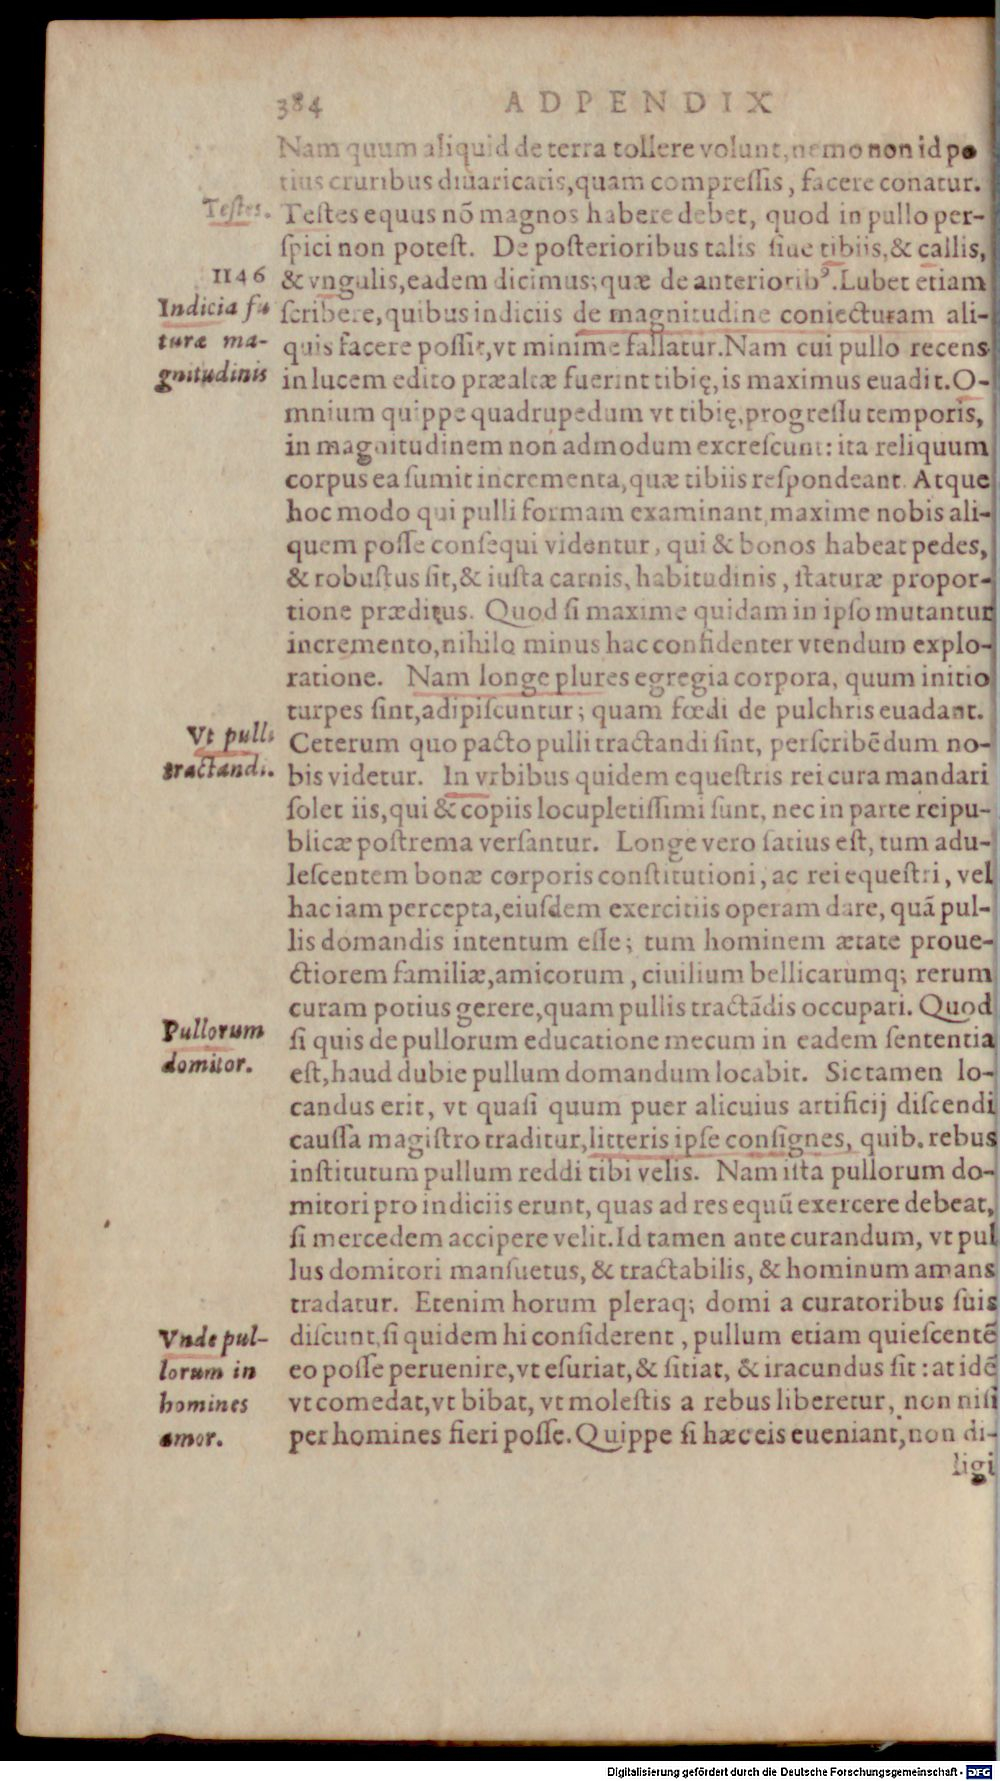 384 ADPENDIX
Nam quum aliquid de terra tollere volunt, nemo non id po
tius cruribus diuaricatis, quam compreſſis, facere conatur.
Teſtes.
Teſtes equus nõ magnos habere debet, quod in pullo per-
ſpici non poteſt. De poſterioribus talis ſiue tibiis, & callis,
1146
& vngulis, eadem dicimus; quæ de anteriorib⁹. Lubet etiam
Indicia fu
turæ ma-
gnitudinis
ſcribere, quibus indiciis de magnitudine coniecturam ali-
quis facere poſſit, vt minime fallatur. Nam cui pullo recens
in lucem edito præaltæ fuerint tibię, is maximus euadit. O-
mnium quippe quadrupedum vt tibię, progreſſu temporis,
in magnitudinem non admodum excreſcunt: ita reliquum
corpus ea ſumit incrementa, quæ tibiis reſpondeant. Atque
hoc modo qui pulli formam examinant, maxime nobis ali-
quem poſſe conſequi videntur, qui & bonos habeat pedes,
& robuſtus ſit, & iuſta carnis, habitudinis, ſtaturæ propor-
tione præditus. Quod ſi maxime quidam in ipſo mutantur
incremento, nihilo minus hac confidenter vtendum explo-
ratione. Nam longe plures egregia corpora, quum initio
turpes ſint, adipiſcuntur; quam fœdi de pulchris euadant.
Vt pulli
tractandi.
Ceterum quo pacto pulli tractandi ſint, perſcribēdum no-
bis videtur. In vrbibus quidem equeſtris rei cura mandari
ſolet iis, qui & copiis locupletiſſimi ſunt, nec in parte reipu-
blicæ poſtrema verſantur. Longe vero ſatius eſt, tum adu-
leſcentem bonæ corporis conſtitutioni, ac rei equeſtri, vel
hac iam percepta, eiuſdem exercitiis operam dare, quā pul-
lis domandis intentum eſſe; tum hominem ætate proue-
ctiorem familiæ, amicorum, ciuilium bellicarumq; rerum
curam potius gerere, quam pullis tractādis occupari. Quod
Pullorum
domitor.
ſi quis de pullorum educatione mecum in eadem ſententia
eſt, haud dubie pullum domandum locabit. Sic tamen lo-
candus erit, vt quaſi quum puer alicuius artificij diſcendi
cauſſa magiſtro traditur, litteris ipſe conſignes, quib. rebus
inſtitutum pullum reddi tibi velis. Nam iſta pullorum do-
mitori pro indiciis erunt, quas ad res equū exercere debeat,
ſi mercedem accipere velit. Id tamen ante curandum, vt pul
lus domitori manſuetus, & tractabilis, & hominum amans
tradatur. Etenim horum pleraq; domi a curatoribus ſuis
Vnde pul-
lorum in
homines
amor.
diſcunt, ſi quidem hi conſiderent, pullum etiam quieſcentē
eo poſſe peruenire, vt eſuriat, & ſitiat, & iracundus ſit: at idē
vt comedat, vt bibat, vt moleſtis a rebus liberetur, non niſi
per homines fieri poſſe. Quippe ſi hæc eis eueniant, non di-
ligi
Digitalisierung gefördert durch die Deutsche Forschungsgemeinschaft - DFG